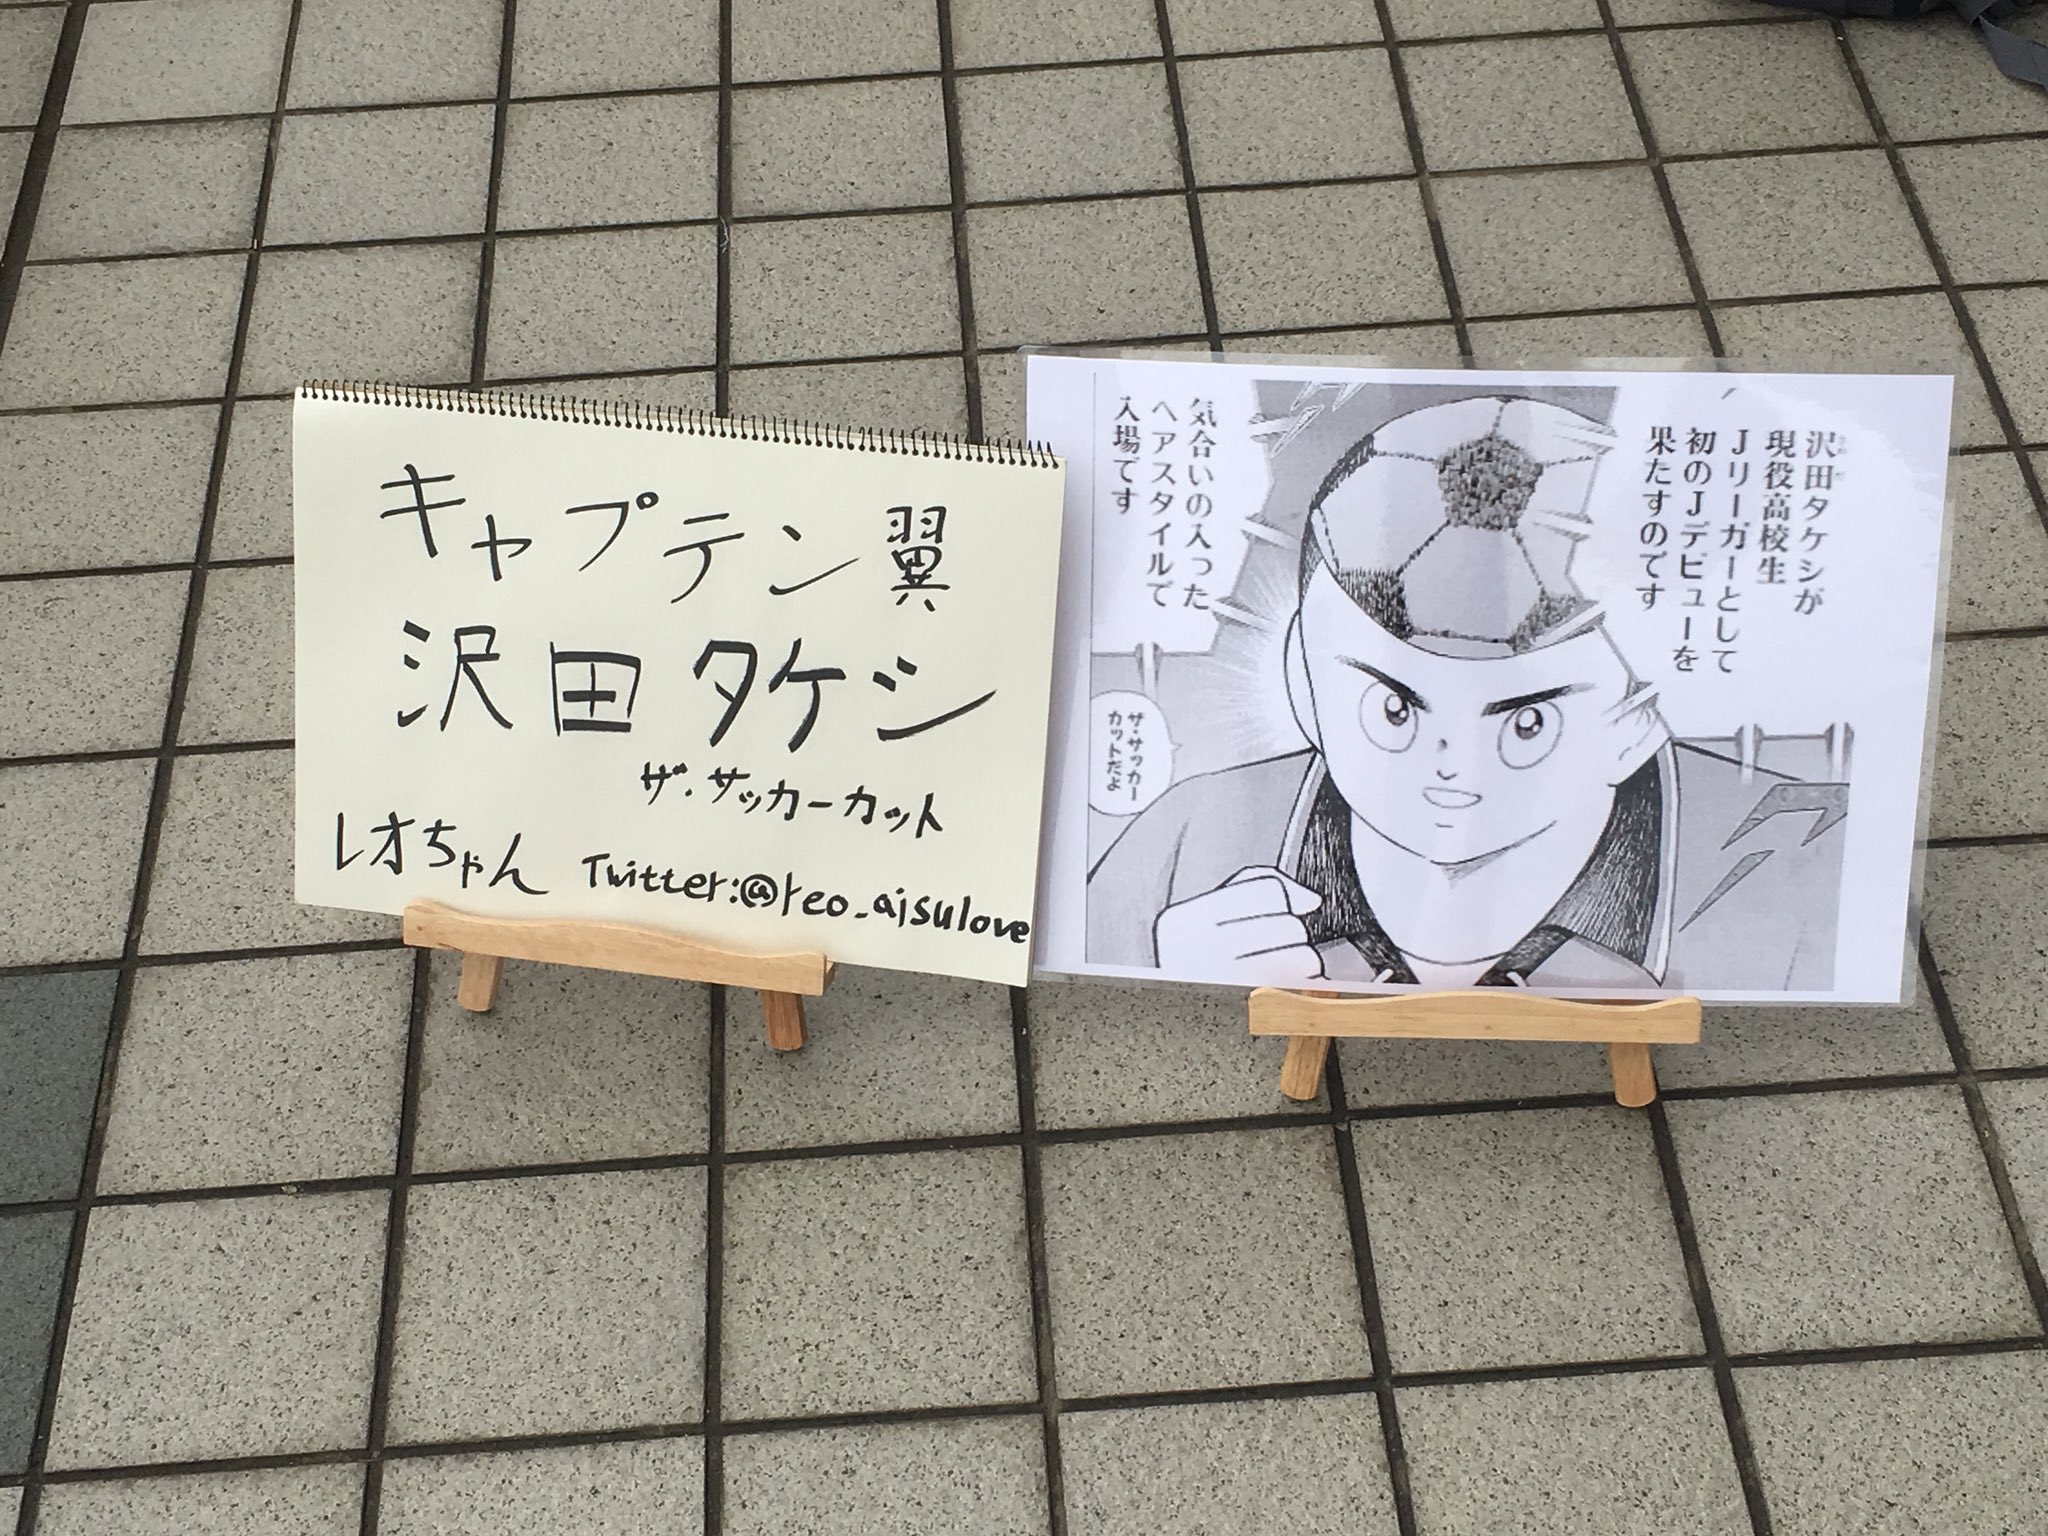 キャプテン翼
沢田タケシ
ザ・サッカーカット
レオちゃん Twitter:@reo_aisulove
沢田タケシが
現役高校生
Jリーガーとして
初のJデビューを
果たすのです
気合いの入った
ヘアスタイルで
入場です
ザ・サッカー
カットだよ